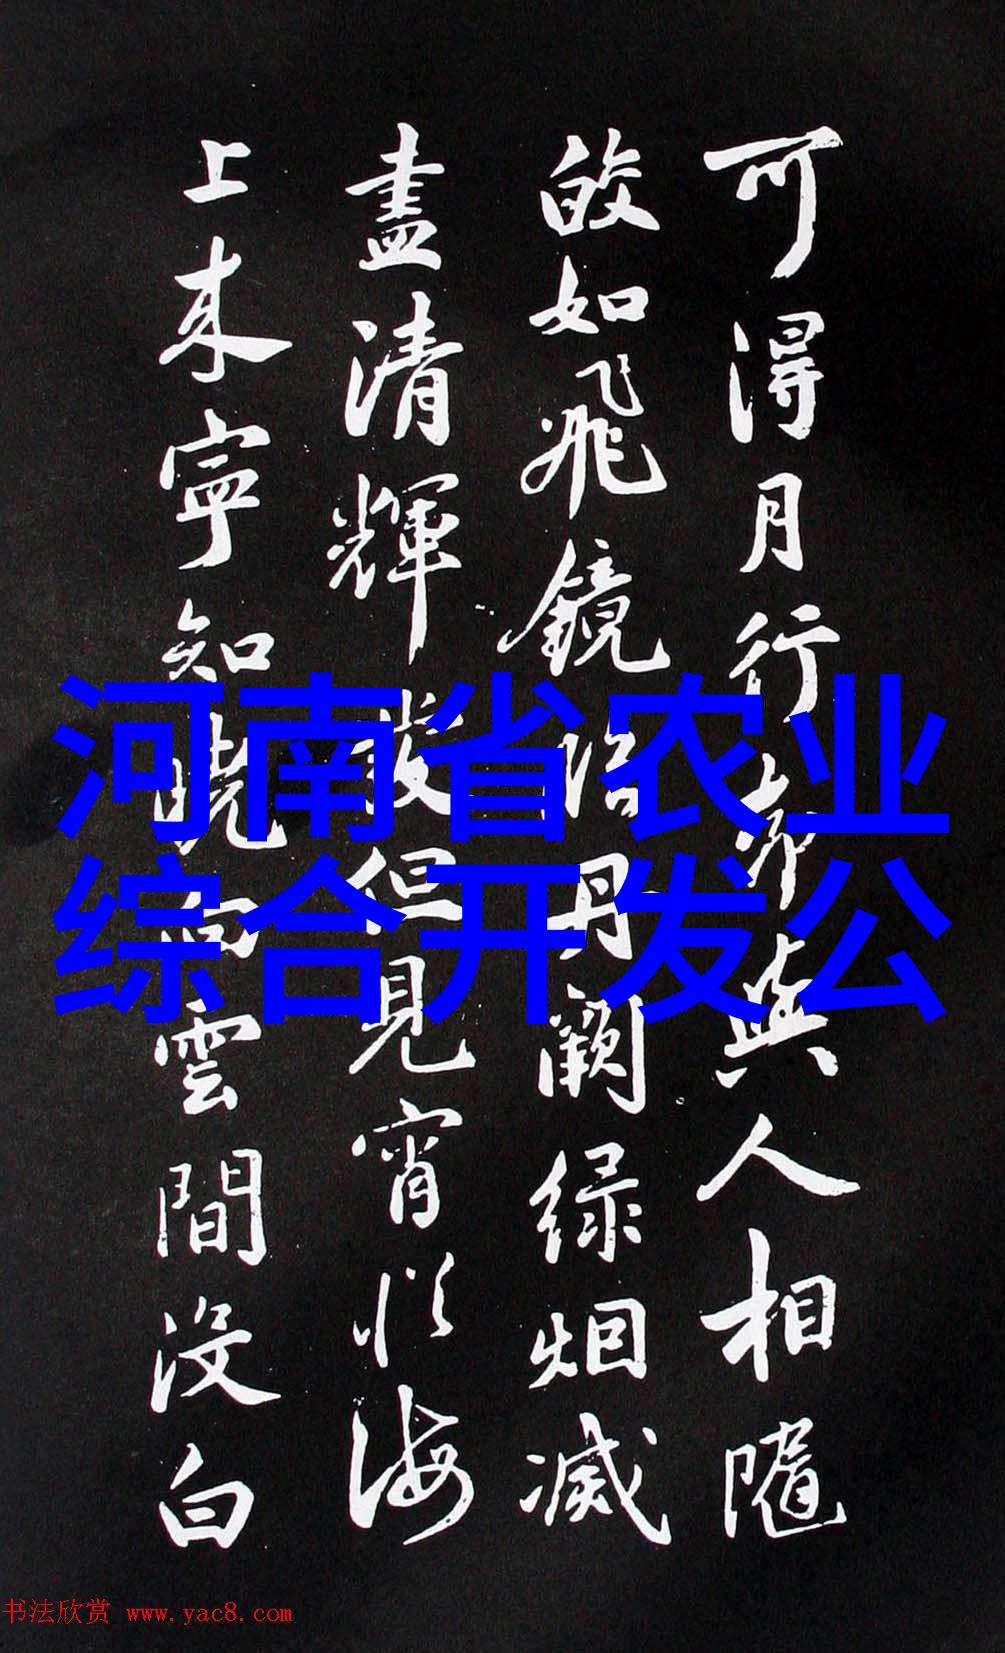 可得月行却與人相隨
皎如飛鏡臨丹闕绿烟滅
盡清輝發但見宵從海
上來寧知曉向雲間沒白
河南省农业
综合开发公
书法欣赏 www.yac8.com